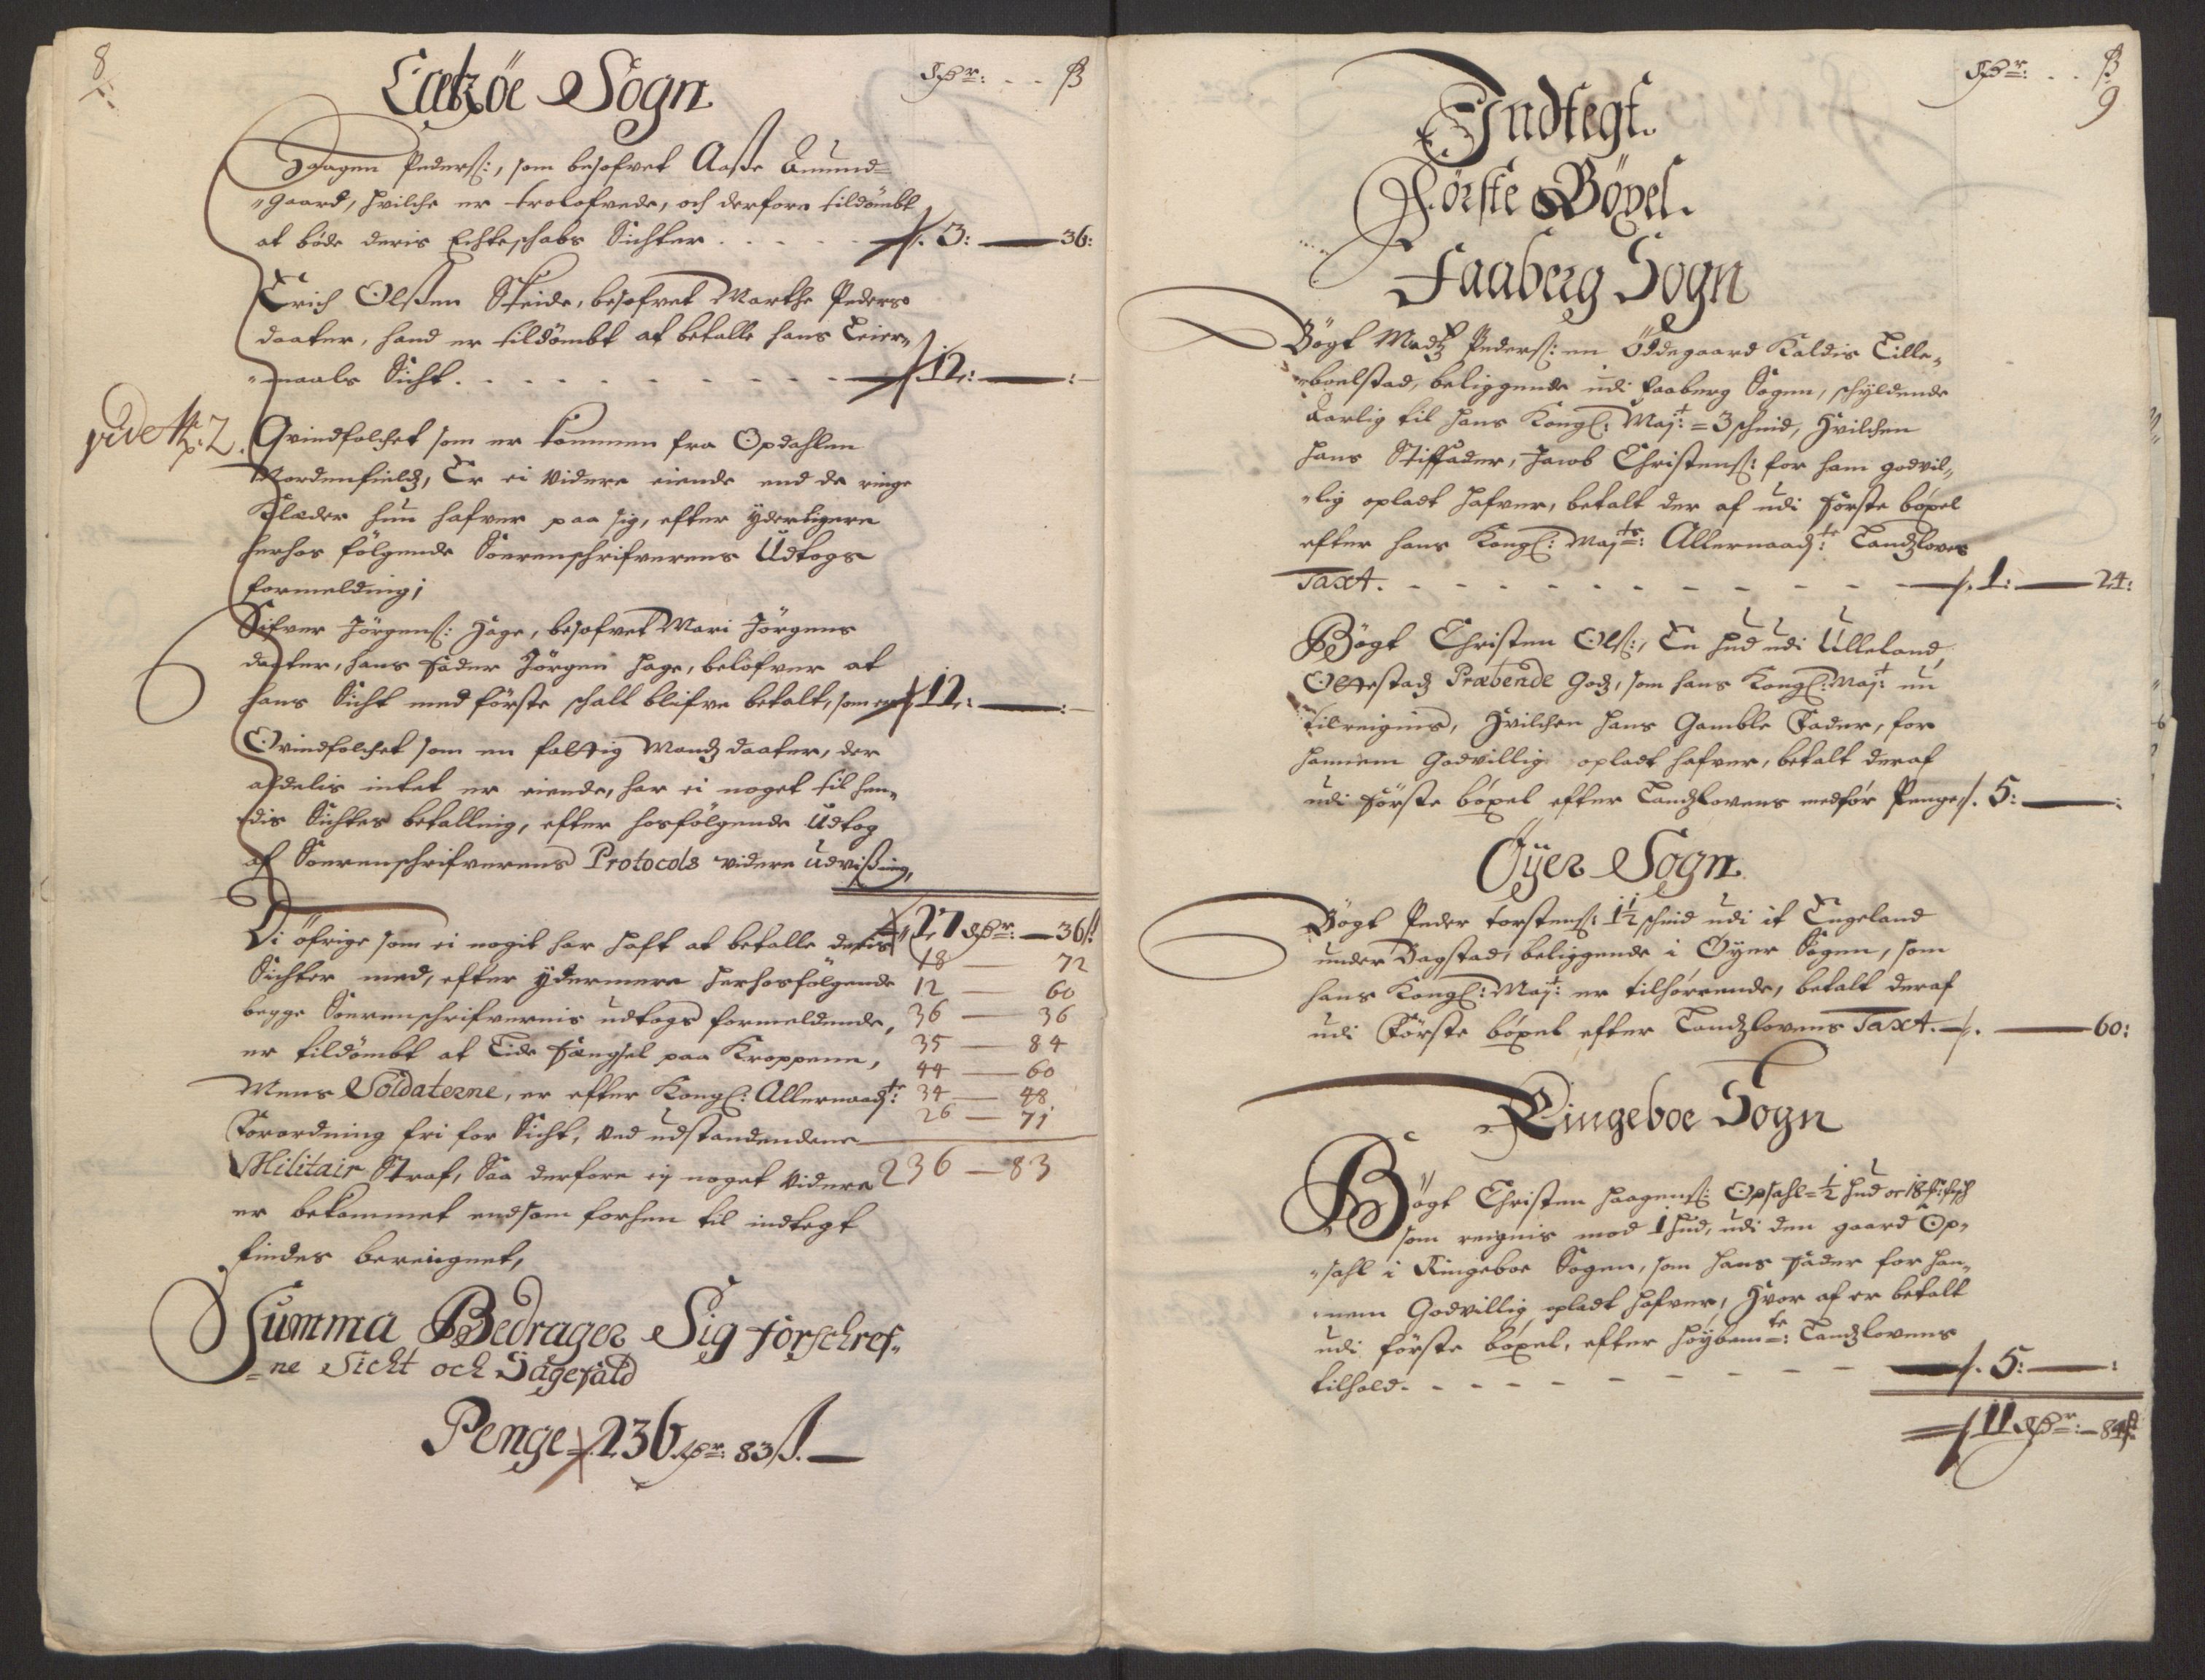 8
Sogn
Rdr: . . ß
Haagen Peders:, som besofvet Aaste Amund=
"gaard, hvilche er trolofvede, och derfore tildømbt
at bøde deris Echteschabs Sichter . . . . 3: — 36:
Erich Olßen Skeide, besofvet Marthe Peders
daater, hand er tildømbt at betalle hans Leier,,
"maals Sicht. . . . . . . . 12: — :
vide No: 2.
Qvindfolchet som er kommen fra Opdahlen
Nordenfields, Er ei videre eiende end de ringe
Klæder hun hafver paa sig, efter yderligere
herhos følgende Sorenschrifverens Udtogs
formelding;
Sifver Jörgens: Hage, besofvet Mari Jörgens
daater, hans fader Jörgen Hage, belofver at
hans Sicht med første schall blifve betalt, som er 12: — :
Qvindfolchet som en fattig Mands daater, der
aldelis intet er eiende, har ei noget til hen,,
dis Sichtes betalling, efter hosfølgende Udtog
af Sorenschrifverens Protocols videre Udvißning,
27 Rdr: — 36 ß
Di øfrige som ei nogit har haft at betalle deris
18 — 72
Sichter med, efter ydermere herhosfølgende
12 — 60
begge Sorenschrifvernis udtogs formeldende,
36 — 36
er tildømbt at Lide fængsel paa Kroppenn,
35 — 84
44 — 60
Mens Soldaterne, er efter Kongl: Allernaads:te
34 — 48
Forordning fri for Sicht, ved udstaendende
26 — 71
Militair Straf, Saa derfore ej noget videre
236 — 83
er bekommet end som forhen til indtegt
findes bereignet,
Summa Bedrager Sig förschref,,
=ne Sicht och Sagefald
Penge 236 Rdr: 83 ß. —
Rdr: . . ß
9
Indtegt.
Förste Böxel.
Faaberg Sogn
Bögt Madz Peders: en Ödegaard Kaldis Lille,,
"boelstad, beliggende udi Faaberg Sogen, schyldende
Aarlig til Hans Kongl: Maj:t = 3 schind, Hvilchen
hans Stiffader, Jacob Christens: for ham godvil,,
"lig opladt hafver, betalt der af udi Förste böxel
efter hans Kongl: Maj:ts: Allernaads:te Landzloves
Taxt. - - - - - - - - 1: — 24:
Bögt Christen Ols:, En hud udi Ulleland,
Oltestadz Præbende Godz, som hans Kongl: Maj:t nu
tilreignis, Hvilchen hans Gamble Fader, for
hannem Godvillig opladt hafver, betalt deraf
udi förste böxel efter Landzlovens medför Penge 5: — :
Öÿer Sogn
Bögt Peder Torstens: 1½ schind udi it Engeland
under Bagstad, beliggende i Öyer Sogen, som
hans Kongl: Maj:t er tilhörrende, betalt deraf
udi Förste böxel efter Landzlovens Taxt. — 60:
Ringeboe Sogn
Bögt Christen Haagens: Opsahl = ½ hud oc 18
som reignis mod 1 hud, udi den gaard Op,,
"sahl i Ringeboe Sogen, som hans fader for han,,
nem Godvillig opladt hafver, Hvor af er betalt
udi förste böxel, efter höybem:te: Landzlovens
tilhold. - - - - - - - 5: — :
11 Rdr: — 84 ß